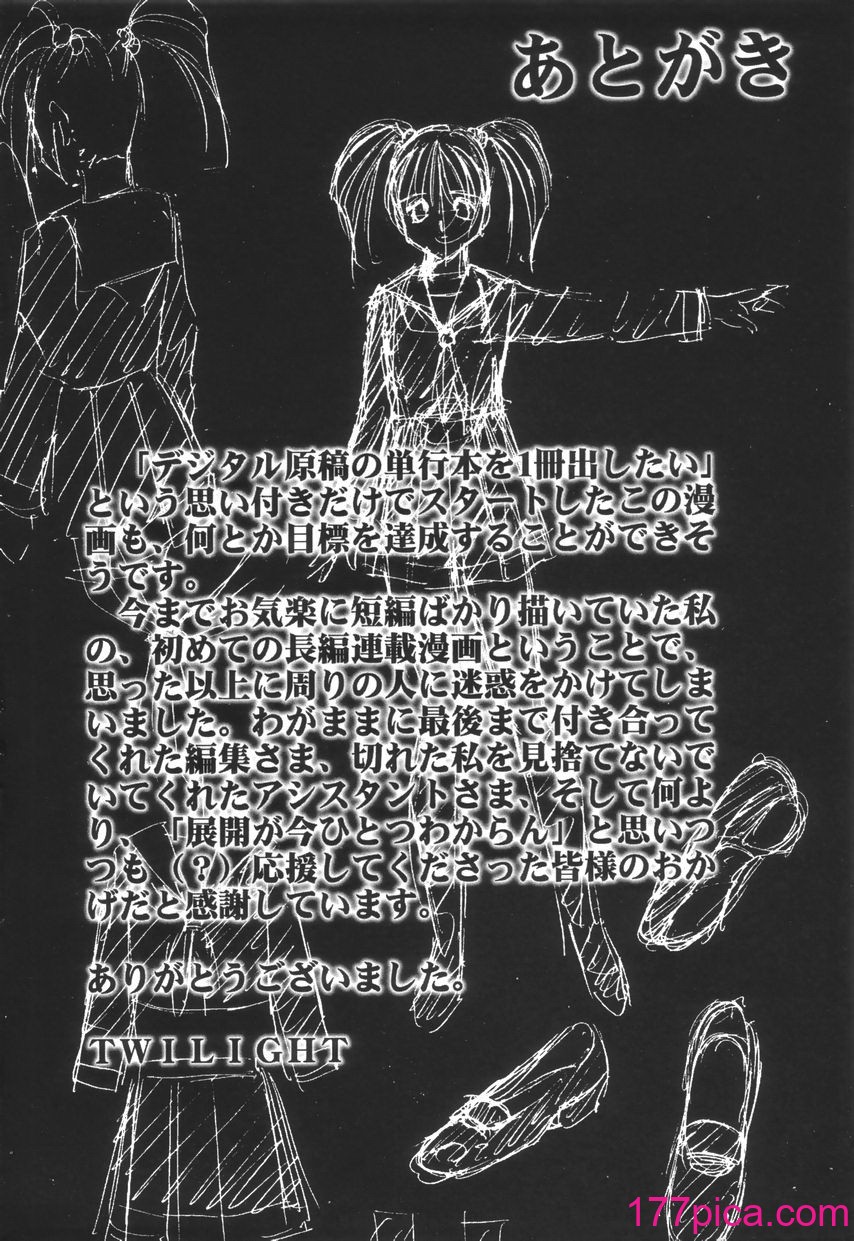 あとがき
「デジタル原稿の単行本を1冊出したい」
という思い付きだけでスタートしたこの漫
画も、何とか目標を達成することができそ
うです。
今までお気楽に短編ばかり描いていた私
の、初めての長編連載漫画ということで、
思った以上に周りの人に迷惑をかけてしま
いました。わがままに最後まで付き合って
くれた編集さま、切れた私を見捨てないで
いてくれたアシスタントさま、そして何よ
り、「展開が今ひとつわからん」と思いつ
つも（？）応援してくださった皆様のおか
げだと感謝しています。
ありがとうございました。
ＴＷＩＬＩＧＨＴ
177pica.com